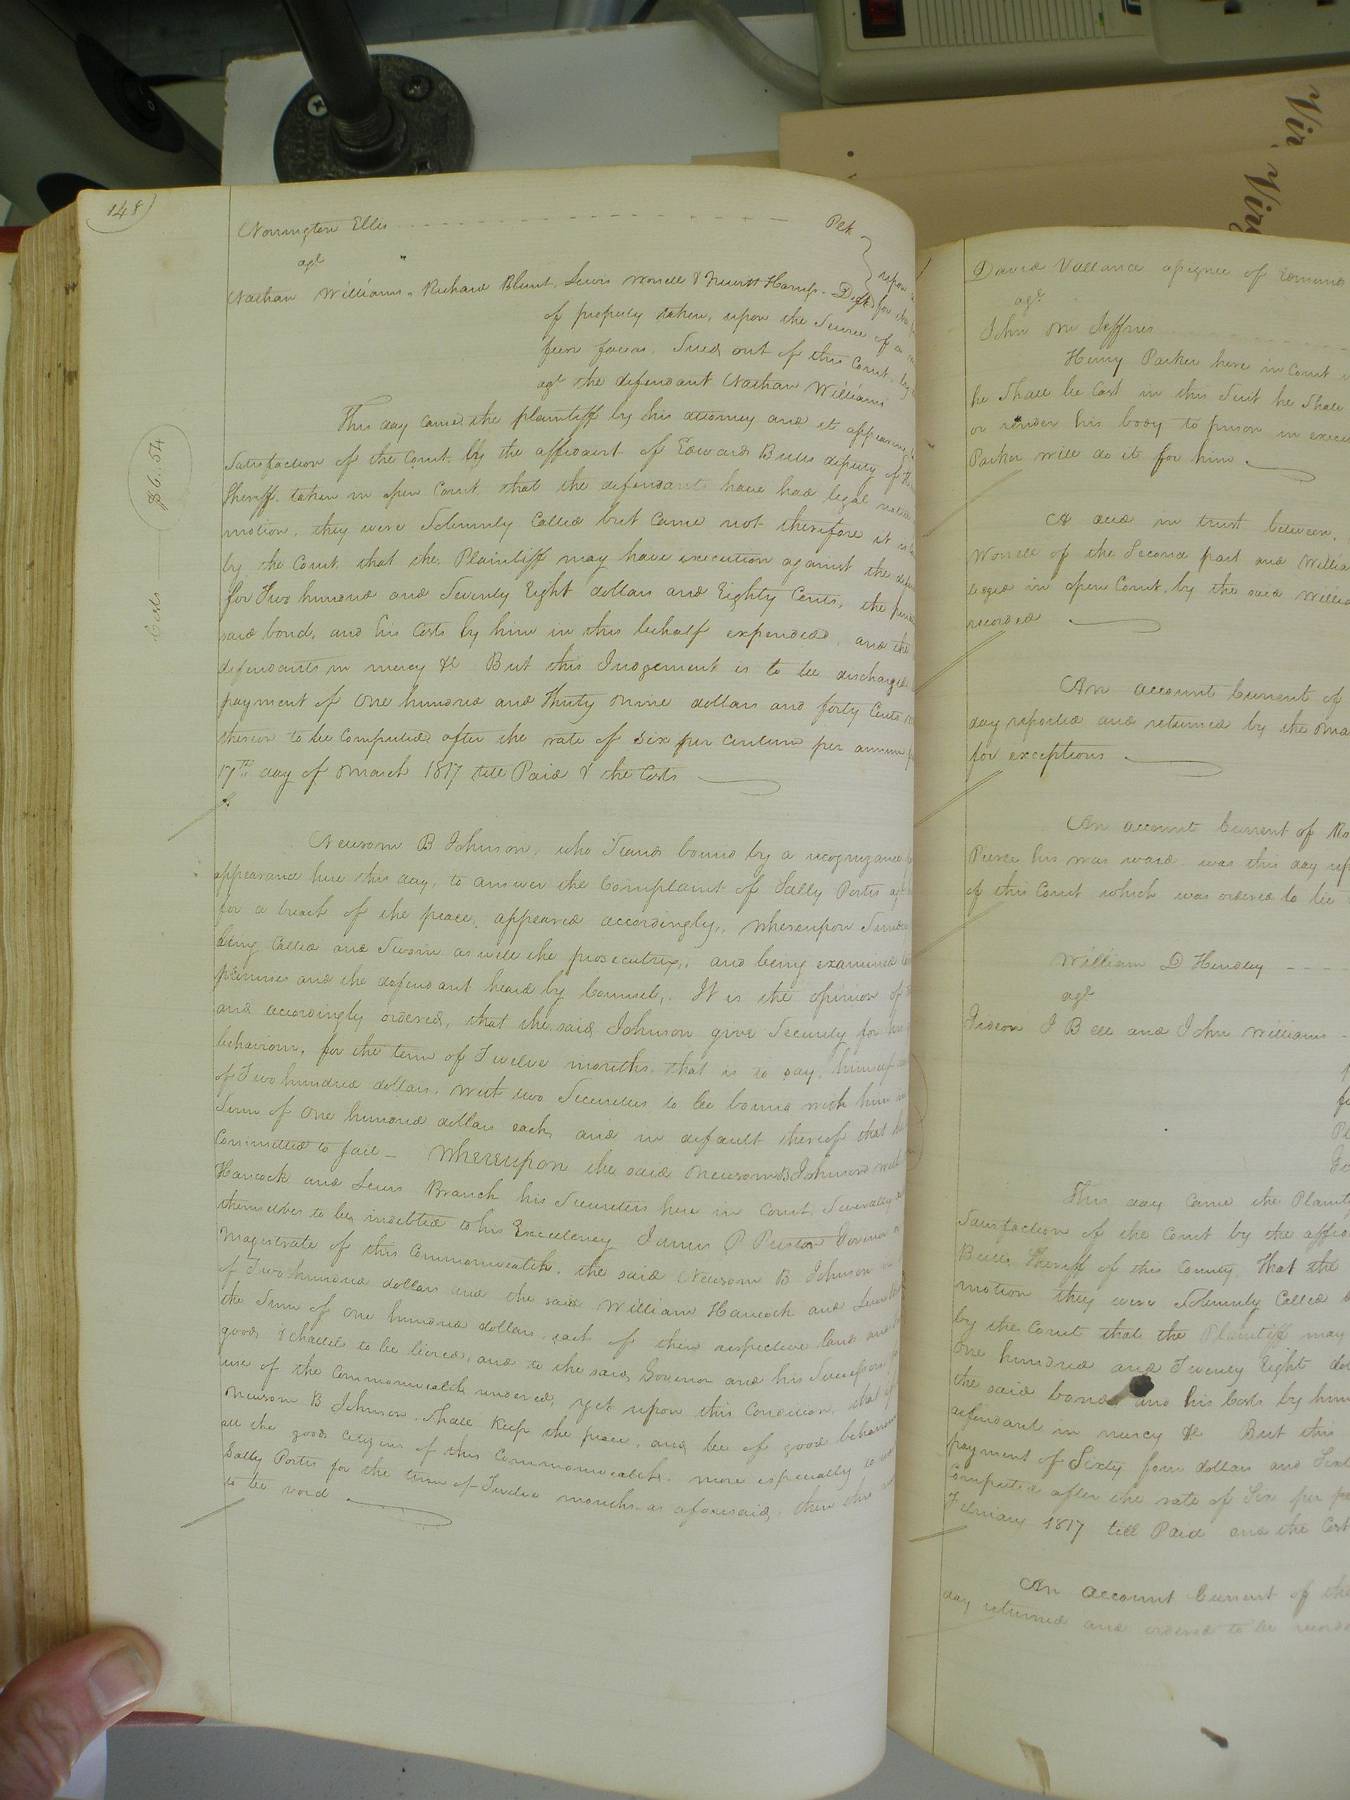 148
Norrington Ellis Plt
agt
Nathan Williams, Richard Blunt, Lewis Worrell & Hamp. Defts upon
of property taken, upon the Service of a
fieri facias, Sued out of this Court, by
agt the defendant Nathan Williams
This day came the plaintiff by his attorney and it appearing
Satisfaction of the Court, by the affidavit of Edward Butts deputy of
Sheriff, taken in open Court, that the defendants have had legal notice
motion, they were Solemnly Called but Came not therefore it is
by the Court that the Plaintiff may have execution against the
for Two hundred and Seventy Eight dollars and Eighty Cents, the
said bond, and his Costs by him in this behalf expended, and the
defendants in mercy &c But this Judgement is to be discharged
payment of One hundred and thirty nine dollars and forty Cents
thereon to be Computed after the rate of Six per centum per annum
17th day of March 1817 till Paid & the Costs
Costs $6.54
Newsom B Johnson, who Stands bound by a recognizance
appearance here this day, to answer the Complaint of Sally Portis
for a breach of the peace, appeared accordingly, whereupon
being Called and Sworn as well the prosecutrix, and being examined
premises and the defendant heard by Counsel, It is the opinion of
and accordingly ordered, that the said Johnson give Security for
behaviour, for the term of Twelve months, that is to say, himself
of Two hundred dollars, with two Securities to be bound with him
Sum of One hundred dollars each, and in default thereof that
Committed to jail — Whereupon the said Newsom B Johnson with
Hancock and Lewis Branch his Securities here in Court Severally
themselves to be indebted to his Excellency James P Preston Governor
Magistrate of this Commonwealth, the said Newsom B Johnson
of Two hundred dollars and the said William Hancock and Lewis
the Sum of One hundred dollars, each of their respective lands and
goods & chattels to be levied, and to the said Governor and his Successors
use of the Commonwealth rendered, yet upon this Condition, that if
Newsom B Johnson, Shall Keep the peace, and be of good behaviour
all the good Citizens of this Commonwealth, more especially
Sally Portis for the term of Twelve months as aforesaid, then this
to be void
David Vallance assignee of Edmund
agt
John Jeffries
Henry Parker here in Court
he Shall be Cast in this Suit he Shall
or render his body to prison in
Parker will do it for him
A deed in trust between
Worrell of the Second part and
in open Court, by the said
recorded
An account Current of
day reported and returned by the
for exceptions
An account Current of
Pierce his was ward was this day
of this Court which was ordered to lie
William D Hendley
agt
Gideon J Bell and John Williams
This day came the
Satisfaction of the Court by the
Butts Sheriff of this County, that the
motion they were Solemnly Called
by the Court that the Plaintiff may
One hundred and Twenty Eight
the said bond and his Costs by him
defendant in mercy &c But this
payment of Sixty four dollars and
Computed after the rate of Six per
February 1817 till Paid and the
An account Current of the
day returned and ordered to be